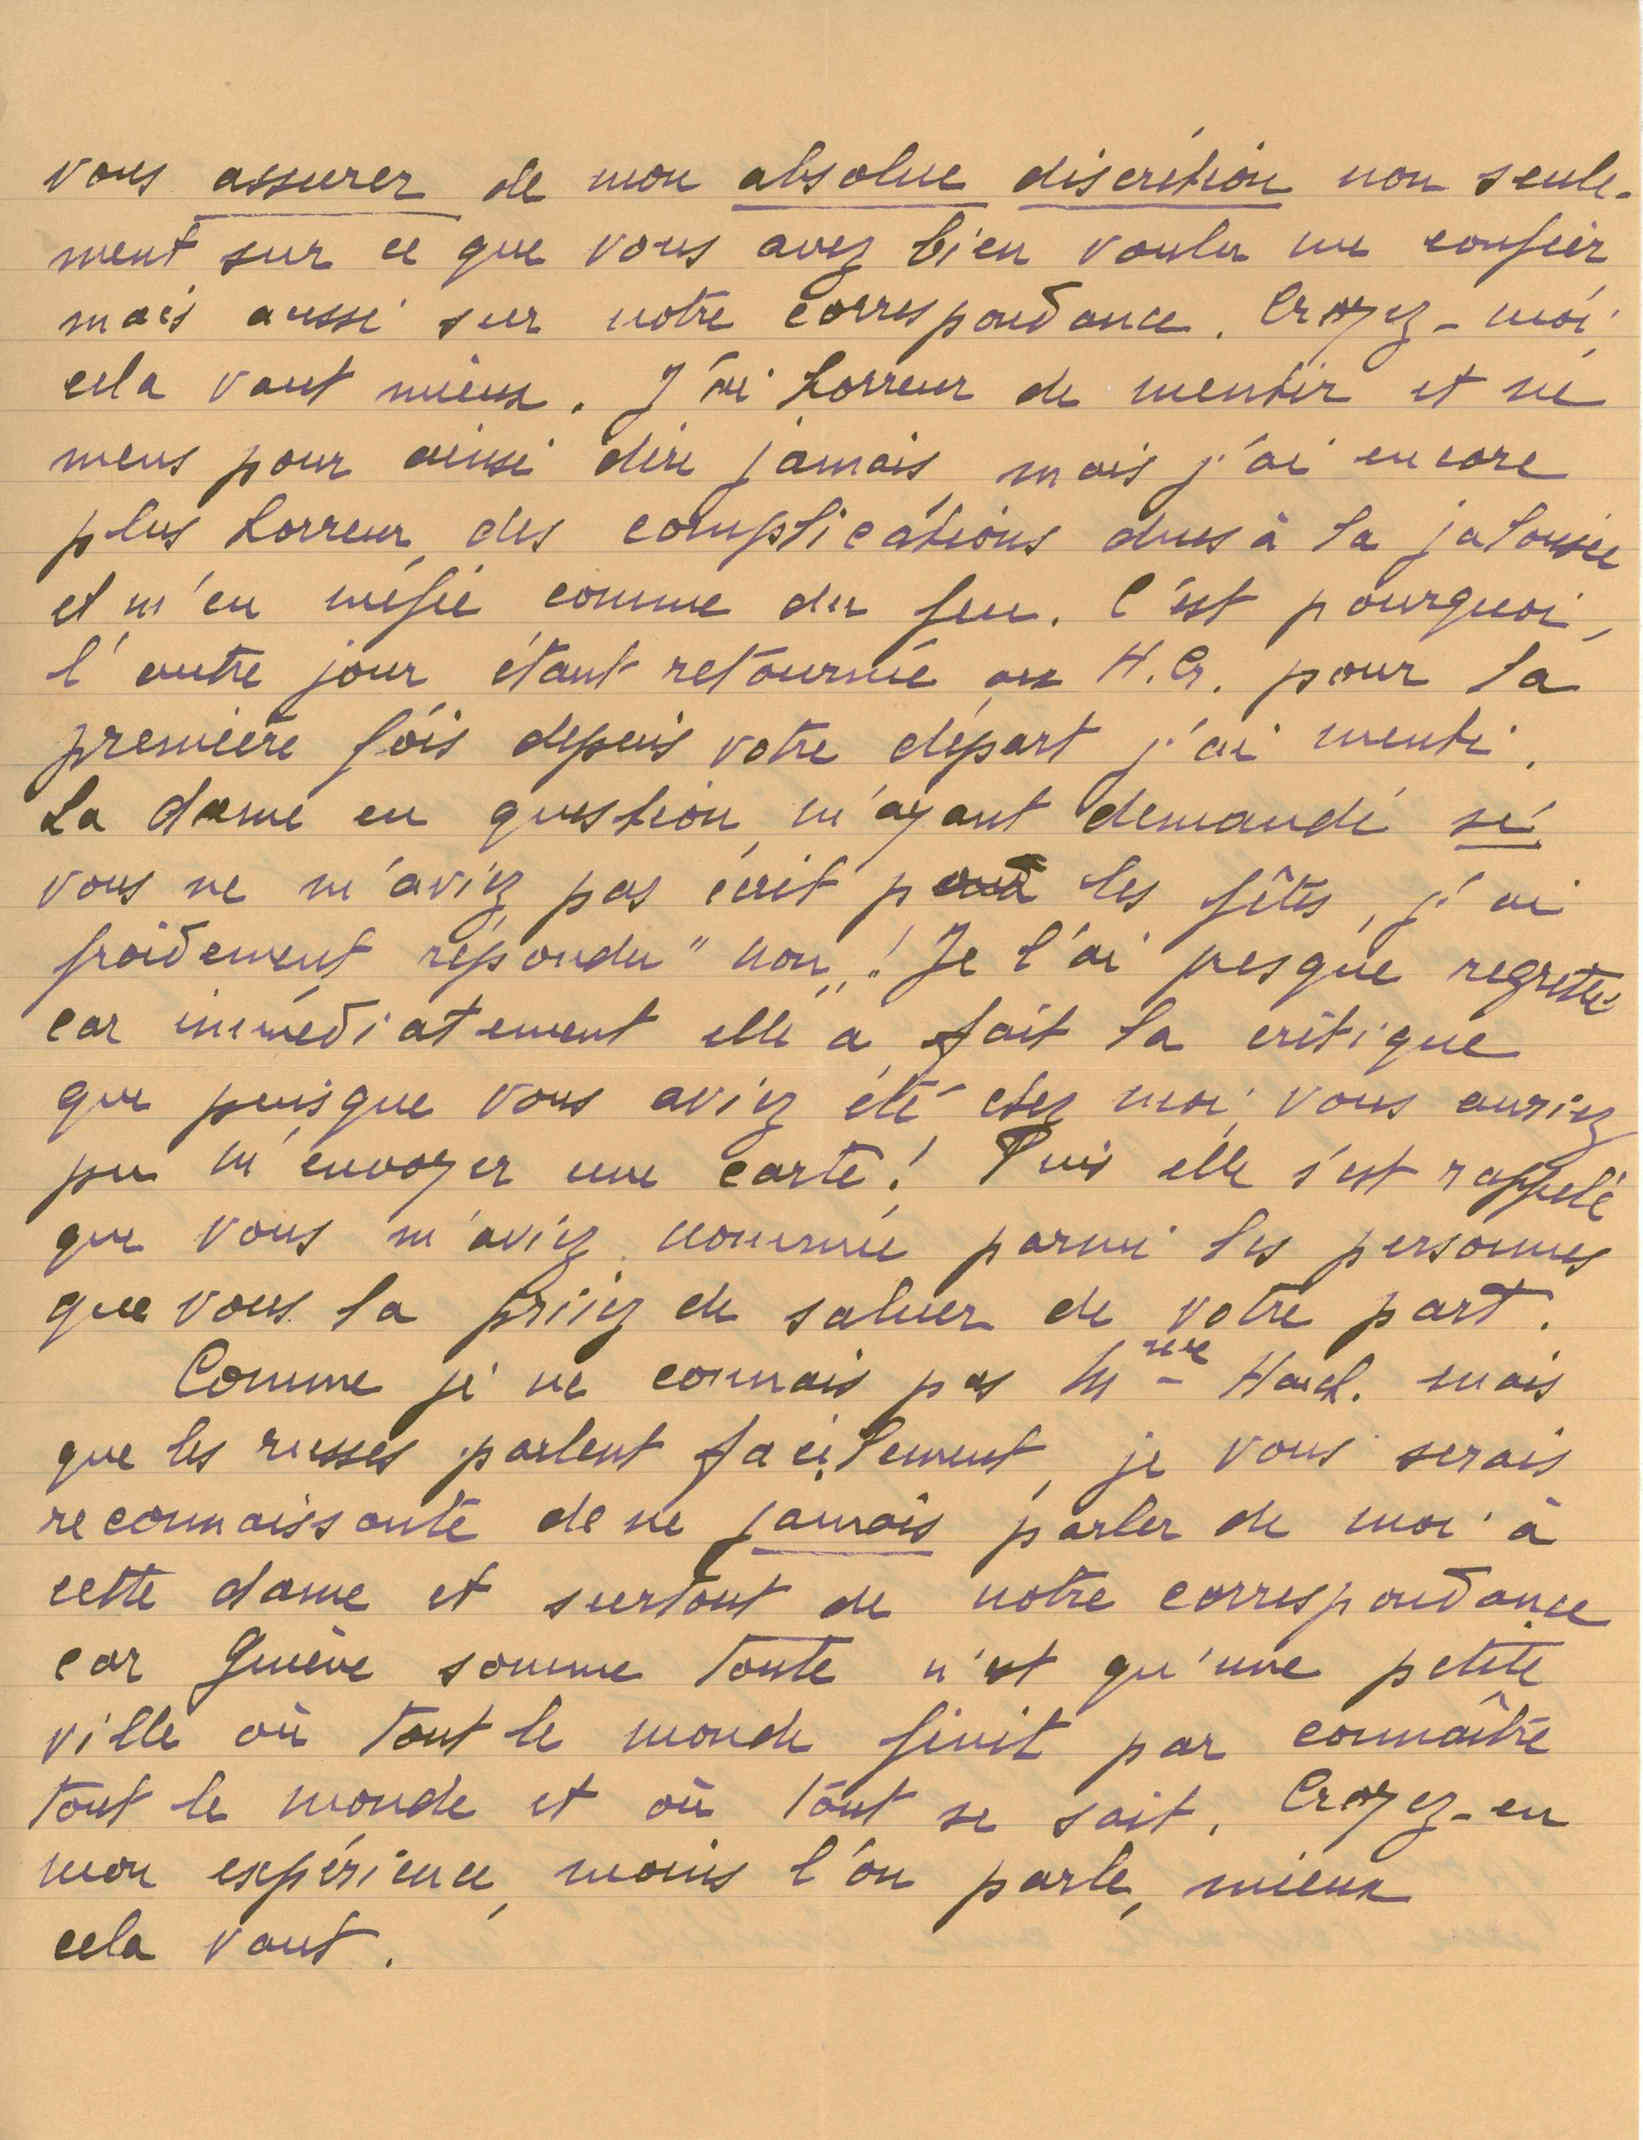 vous assurer de mon absolue discrétion non seule-
ment sur ce que vous avez bien voulu me confier
mais aussi sur notre correspondance. Croyez-moi,
cela vaut mieux. J'ai horreur de mentir et ne
mens pour ainsi dire jamais, mais j'ai encore
plus horreur des complications dues à la jalousie
et m'en méfie comme du feu. C'est pourquoi,
l'autre jour, étant retournée au H.Cr. pour la
première fois depuis votre départ j'ai menti.
La dame en question m'ayant demandé si
vous ne m'aviez pas écrit pour les fêtes, j'ai
froidement répondu "non"! Je l'ai presque regretté
car immédiatement elle a fait la critique
que puisque vous aviez été chez moi, vous auriez
pu m'envoyer une carte! Puis elle s'est rappelé
que vous m'aviez nommée parmi les personnes
que vous la priiez de saluer de votre part.
Comme je ne connais pas Mme mais
que les russes parlent facilement, je vous serais
reconnaissante de ne jamais parler de moi à
cette dame et surtout de notre correspondance
car Genève somme toute n'est qu'une petite
ville où tout le monde finit par connaître
tout le monde et où tout se sait. Croyez-en
mon expérience, moins l'on parle, mieux
cela vaut.